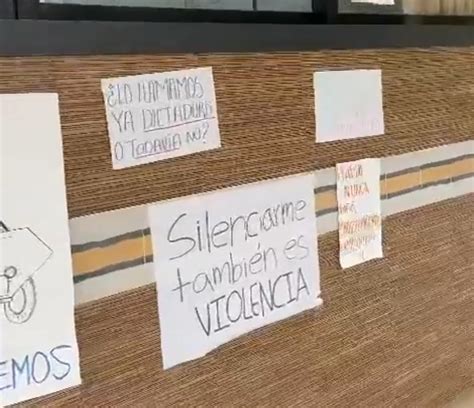 ¿LO LLAMAMOS
YA DICTADURA
O TODAVÍA NO?
Silenciarme
también es
VIOLENCIA
NUNCA
EMOS